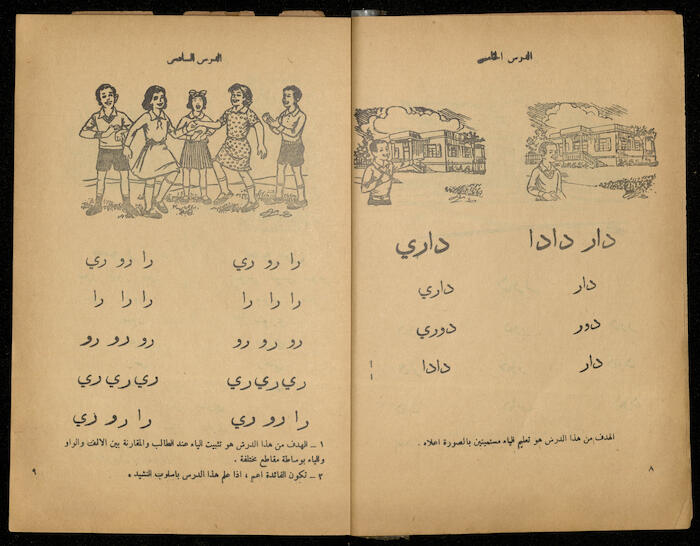 الدرس الخامس
دار دادا داري
دار داري
دور دوري
دار دادا
الهدف من هذا الدرس هو تعليم الياء مستعينين بالصورة اعلاه .
٨
الدرس السادس
را رو ري را رو ري
را را را را را را
رو رو رو رو رو رو
ري ري ري ري ري ري
را رو ري را رو ري
١ ــ الهدف من هذا الدرس هو تثبيت الياء عند الطالب والمقارنة بين الالف والواو
والياء بوساطة مقاطع مختلفة .
٢ ــ تكون الفائدة اعم ، اذا علم هذا الدرس باسلوب النشيد .
٩